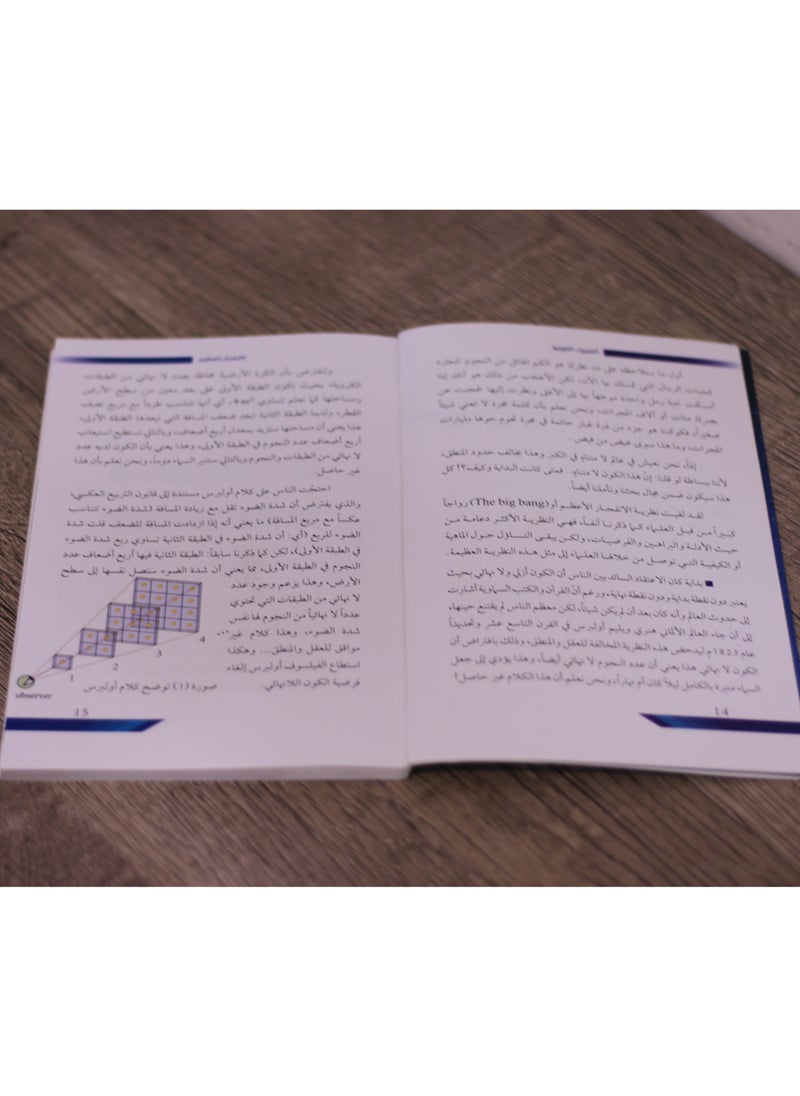 الفيزياء الكونية
أول ما ستلاحظه على مد نظرك هو الكم الهائل من النجوم المتناثرة
كحبات الرمال التي تمسك بها الآن، لكن الأعجب من ذلك هو أنك إذا
أمسكت حبة رمل واحدة موجهاً بها إلى الأعلى ونظرت إليها لحجبت عن
بصرك مئات أو آلاف المجرات، ونحن نعلم بأن كلمة مجرة لا تعني شيئاً
صغيراً، فكوكبنا هو جزء من ذرة غبار حائمة في مجرة تحوم حولها مليارات
المجرات، وما هذا سوى غيض من فيض.
إذاً، نحن نعيش في عالم لا متناهٍ في الكبر وهذا يخالف حدود المنطق،
لأننا ببساطة لو قلنا: إنّ هذا الكون لا متناهٍ.. فمتى كانت البداية وكيف؟! كل
هذا سيكون ضمن مجال بحثنا وتأملنا أيضاً.
لقد لقيت نظرية الانفجار الأعظم أو (The big bang) رواجاً
كبيراً من قبل العلماء كما ذكرنا آنفاً، فهي النظرية الأكثر دعامة من
حيث الأدلة والبراهين والفرضيات، ولكن يبقى التساؤل حول الماهية
أو الكيفية التي توصل من خلالها العلماء إلى مثل هذه النظرية العظيمة.
■ بداية كان الاعتقاد السائد بين الناس أن الكون أزلي ولا نهائي بحيث
يعتبر دون نقطة بداية ودون نقطة نهاية، ورغم أنّ القرآن والكتب السماوية أشارت
إلى حدوث العالم وأنه كان بعد أن لم يكن شيئاً، لكن معظم الناس لم يقتنع حينها،
إلى أن جاء العالم الألماني هنري ويليم أولبرس في القرن التاسع عشر وتحديداً
عام 1823م ليدحض هذه النظرية المخالفة للعقل والمنطق، وذلك بافتراض أن
الكون لا نهائي هذا يعني أن عدد النجوم لا نهائي أيضاً، وهذا يؤدي إلى جعل
السماء منيرة بالكامل ليلاً كان أم نهاراً، ونحن نعلم أن هذا الكلام غير حاصل؟
14
الانفجار العظيم
ولنفترض بأن الكرة الأرضية محاطة بعدد لا نهائي من الطبقات
الكروية، بحيث تكون الطبقة الأولى على بعد معين من سطح الأرض
ومساحتها كما نعلم تساوي، أي أنها تتناسب طرداً مع مربع نصف
القطر، ولدينا الطبقة الثانية تبعد ضعف المسافة التي تبعدها الطبقة الأولى،
هذا يعني أن مساحتها ستزيد بمعدل أربع أضعاف، وبالتالي تستطيع استيعاب
أربع أضعاف عدد النجوم في الطبقة الأولى، وهذا يعني بأن الكون لديه عدد
لا نهائي من الطبقات والنجوم وبالتالي ستنير السماء دوماً، ونحن نعلم بأن هذا
غير حاصل.
احتجّت الناس على كلام أولبرس مستندة إلى قانون التربيع العكسي،
والذي يفترض أن شدة الضوء تقل مع زيادة المسافة (شدة الضوء تتناسب
عكساً مع مربع المسافة) ما يعني أنه إذا ازدادت المسافة للضعف قلت شدة
الضوء للربع (أي: أن شدة الضوء في الطبقة الثانية تساوي ربع شدة الضوء
في الطبقة الأولى)، لكن كما ذكرنا سابقاً: الطبقة الثانية فيها أربع أضعاف عدد
النجوم في الطبقة الأولى، مما يعني أن شدة الضوء ستصل نفسها إلى سطح
الأرض، وهذا يزعم وجود عدد
لا نهائي من الطبقات التي تحتوي
عدداً لا نهائياً من النجوم لها نفس
شدة الضوء، وهذا كلام غير
موافق للعقل والمنطق... وهكذا
استطاع الفيلسوف أولبرس إلغاء
فرضية الكون اللانهائي.
4
3
2
1
observer
صورة (1) توضح كلام أولبرس
15